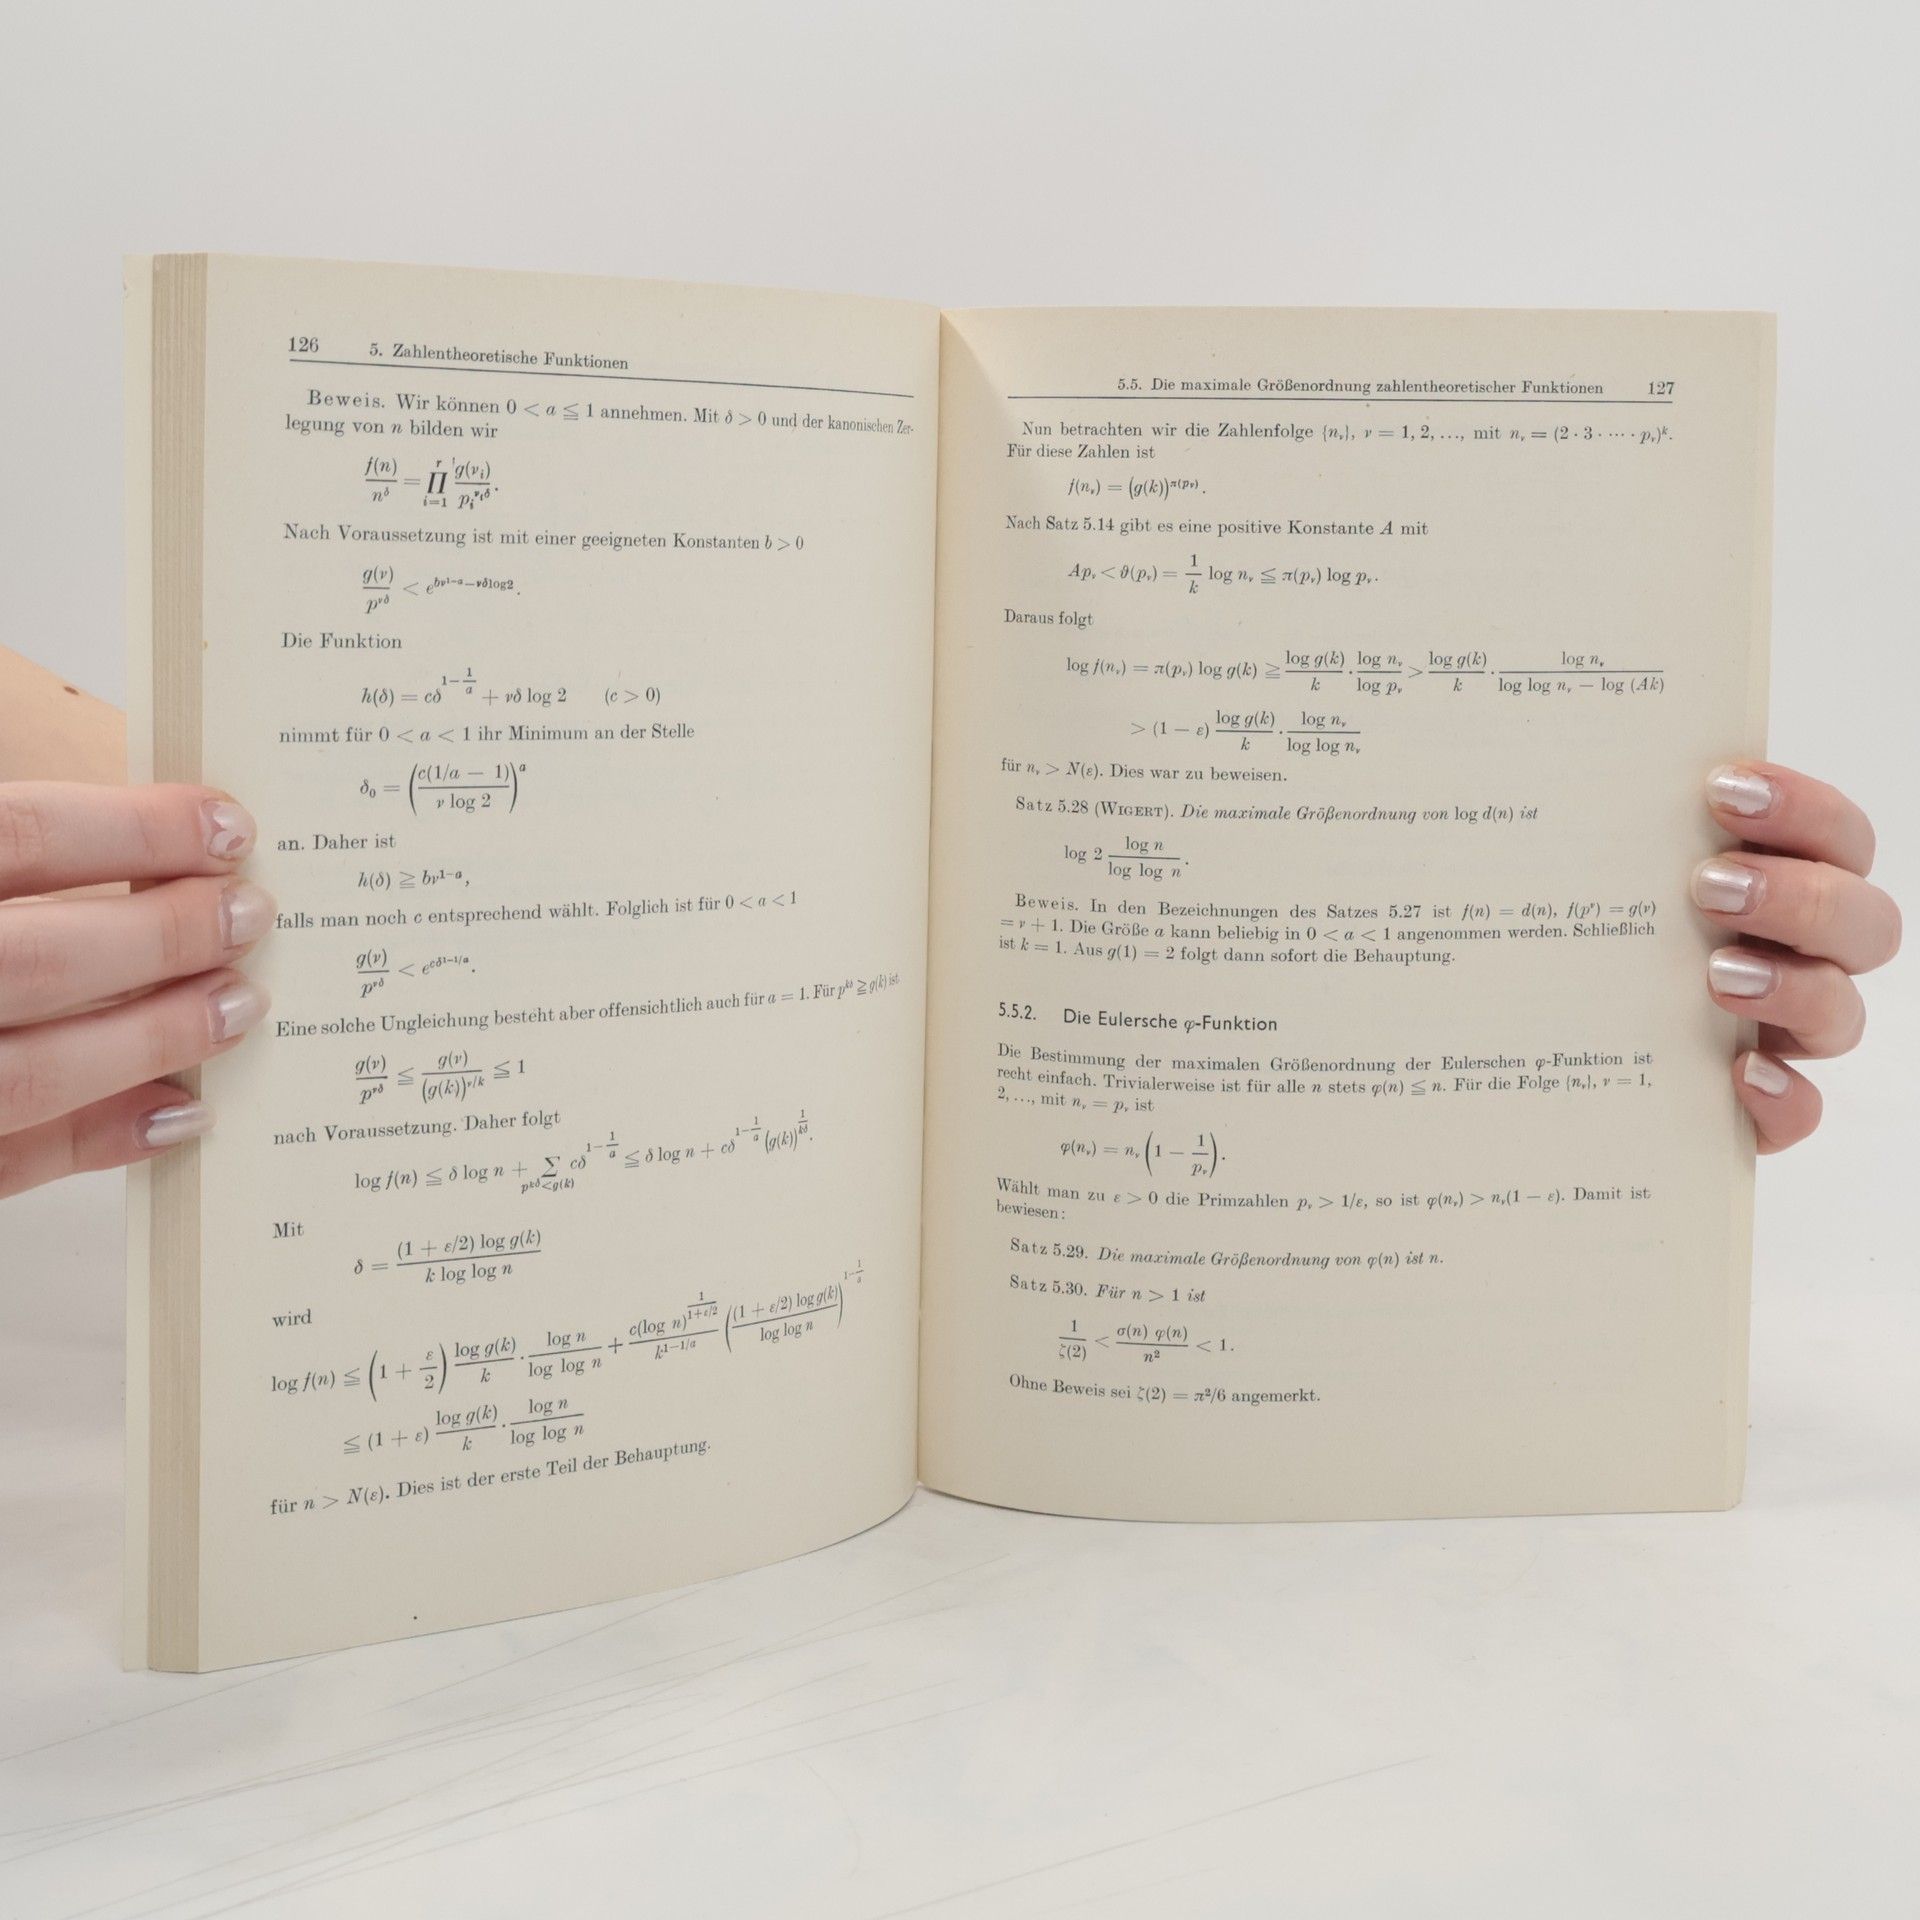 126 5. Zahlentheoretische Funktionen
Beweis. Wir können 0 < a ≦ 1 annehmen. Mit δ > 0 und der kanonischen Zer-
legung von n bilden wir
f(n)/n^δ = ∏_{i=1}^{r} g(ν_i)/p_i^{ν_i δ}.
Nach Voraussetzung ist mit einer geeigneten Konstanten b > 0
g(ν)/p^{νδ} < e^{bν^{1−a}−νδlog2}.
Die Funktion
h(δ) = cδ^{1−1/a} + νδ log 2 (c > 0)
nimmt für 0 < a < 1 ihr Minimum an der Stelle
δ_0 = (c(1/a − 1)/(ν log 2))^a
an. Daher ist
h(δ) ≧ bν^{1−a},
falls man noch c entsprechend wählt. Folglich ist für 0 < a < 1
g(ν)/p^{νδ} < e^{cδ^{1−1/a}}.
Eine solche Ungleichung besteht aber offensichtlich auch für a = 1. Für p^{kδ} ≧ g(k) ist
g(ν)/p^{νδ} ≦ g(ν)/(g(k))^{ν/k} ≦ 1
nach Voraussetzung. Daher folgt
log f(n) ≦ δ log n + ∑_{p^{kδ}<g(k)} cδ^{1−1/a} ≦ δ log n + cδ^{1−1/a} (g(k))^{1/(kδ)}.
Mit
δ = (1 + ε/2) log g(k)/(k log log n)
wird
log f(n) ≦ (1 + ε/2) log g(k)/k · log n/log log n + c(log n)^{1/(1+ε/2)}/k^{1−1/a} ((1 + ε/2) log g(k)/log log n)^{1−1/a}
≦ (1 + ε) log g(k)/k · log n/log log n
für n > N(ε). Dies ist der erste Teil der Behauptung.
5.5. Die maximale Größenordnung zahlentheoretischer Funktionen 127
Nun betrachten wir die Zahlenfolge {n_ν}, ν = 1, 2, ..., mit n_ν = (2 · 3 · ··· · p_ν)^k.
Für diese Zahlen ist
f(n_ν) = (g(k))^{π(p_ν)}.
Nach Satz 5.14 gibt es eine positive Konstante A mit
Ap_ν < ϑ(p_ν) = 1/k log n_ν ≦ π(p_ν) log p_ν.
Daraus folgt
log f(n_ν) = π(p_ν) log g(k) ≧ log g(k)/k · log n_ν/log p_ν > log g(k)/k · log n_ν/(log log n_ν − log (Ak))
> (1 − ε) log g(k)/k · log n_ν/log log n_ν
für n_ν > N(ε). Dies war zu beweisen.
Satz 5.28 (WIGERT). Die maximale Größenordnung von log d(n) ist
log 2 log n/log log n.
Beweis. In den Bezeichnungen des Satzes 5.27 ist f(n) = d(n), f(p^ν) = g(ν)
= ν + 1. Die Größe a kann beliebig in 0 < a < 1 angenommen werden. Schließlich
ist k = 1. Aus g(1) = 2 folgt dann sofort die Behauptung.
5.5.2. Die Eulersche φ-Funktion
Die Bestimmung der maximalen Größenordnung der Eulerschen φ-Funktion ist
recht einfach. Trivialerweise ist für alle n stets φ(n) ≦ n. Für die Folge {n_ν}, ν = 1,
2, ..., mit n_ν = p_ν ist
φ(n_ν) = n_ν (1 − 1/p_ν).
Wählt man zu ε > 0 die Primzahlen p_ν > 1/ε, so ist φ(n_ν) > n_ν(1 − ε). Damit ist
bewiesen:
Satz 5.29. Die maximale Größenordnung von φ(n) ist n.
Satz 5.30. Für n > 1 ist
1/ζ(2) < σ(n) φ(n)/n² < 1.
Ohne Beweis sei ζ(2) = π²/6 angemerkt.